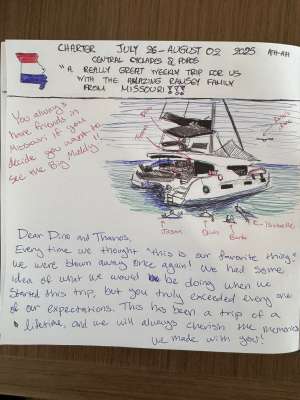 CHARTER JULY 26-AUGUST 02 2025 ATH-ATH
CENTRAL CYCLADES & POROS
"A REALLY GREAT WEEKLY TRIP FOR US
WITH THE AMAZING RAMSEY FAMILY
FROM MISSOURI!!!
You always
have friends in
Missouri if you
decide you want to
see the Big
Muddy!
Jason
Dear Dino and Thanos,
Every time we thought "this is our favorite thing"
we were blown away once again! We had some
idea of what we would be doing when we
started this trip, but you truly exceeded every one
of our expectations. This has been a trip of a
lifetime, and we will always cherish the memories
we made with you!